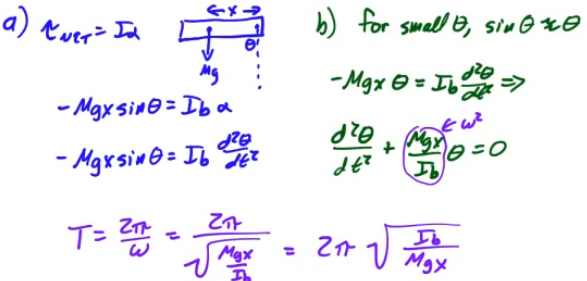 a) τ_NET = Iα
x
θ
Mg
-Mgx sinθ = I_b α
-Mgx sinθ = I_b d²θ/dt²
b) for small θ, sinθ ≈ θ
-Mgxθ = I_b d²θ/dt² ⇒
d²θ/dt² + (Mgx/I_b) θ = 0
← ω²
T = 2π/ω = 2π/√(Mgx/I_b) = 2π √(I_b/Mgx)